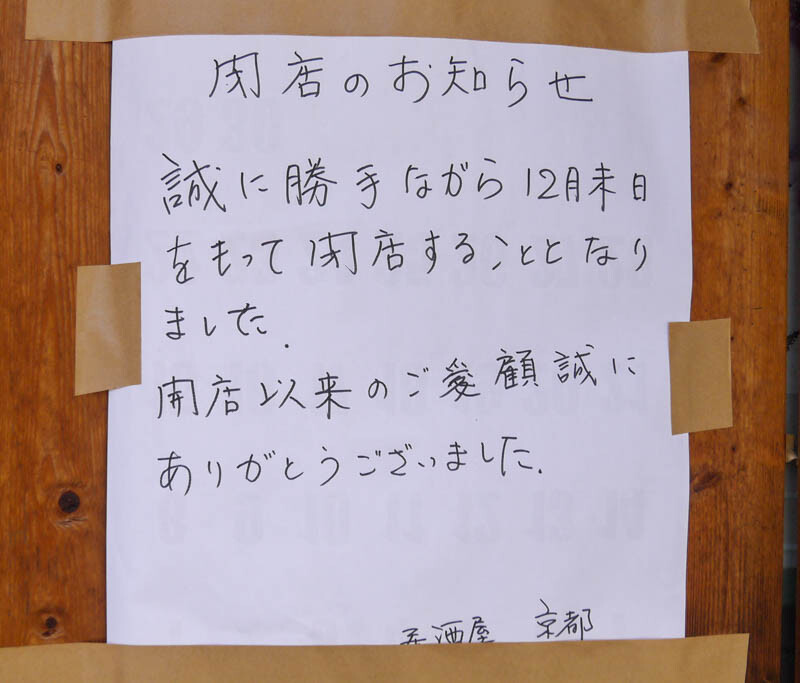 閉店のお知らせ
誠に勝手ながら12月末日
をもって閉店することとなり
ました.
開店以来のご愛顧誠に
ありがとうございました.
居酒屋 京都